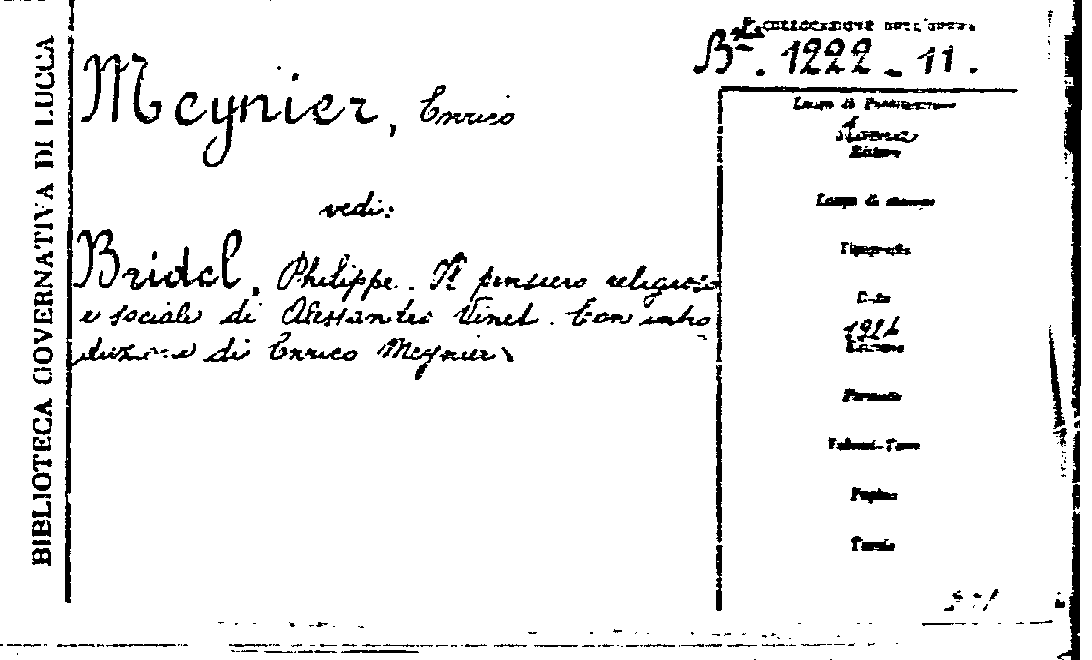 BIBLIOTECA GOVERNATIVA DI LUCCA
COLLOCAZIONE DELL'OPERA
Bta. 1222 - 11.
Meynier, Enrico
vedi:
Bridel, Philippe. Il pensiero religioso
e sociale di Alessandro Vinet. Con intro
duzione di Enrico Meynier
Luogo di Pubblicazione
Roma
Editore
Luogo di stampa
Tipografia
Data
Edizione
Formato
Volumi-Tomo
Pagine
Tavole